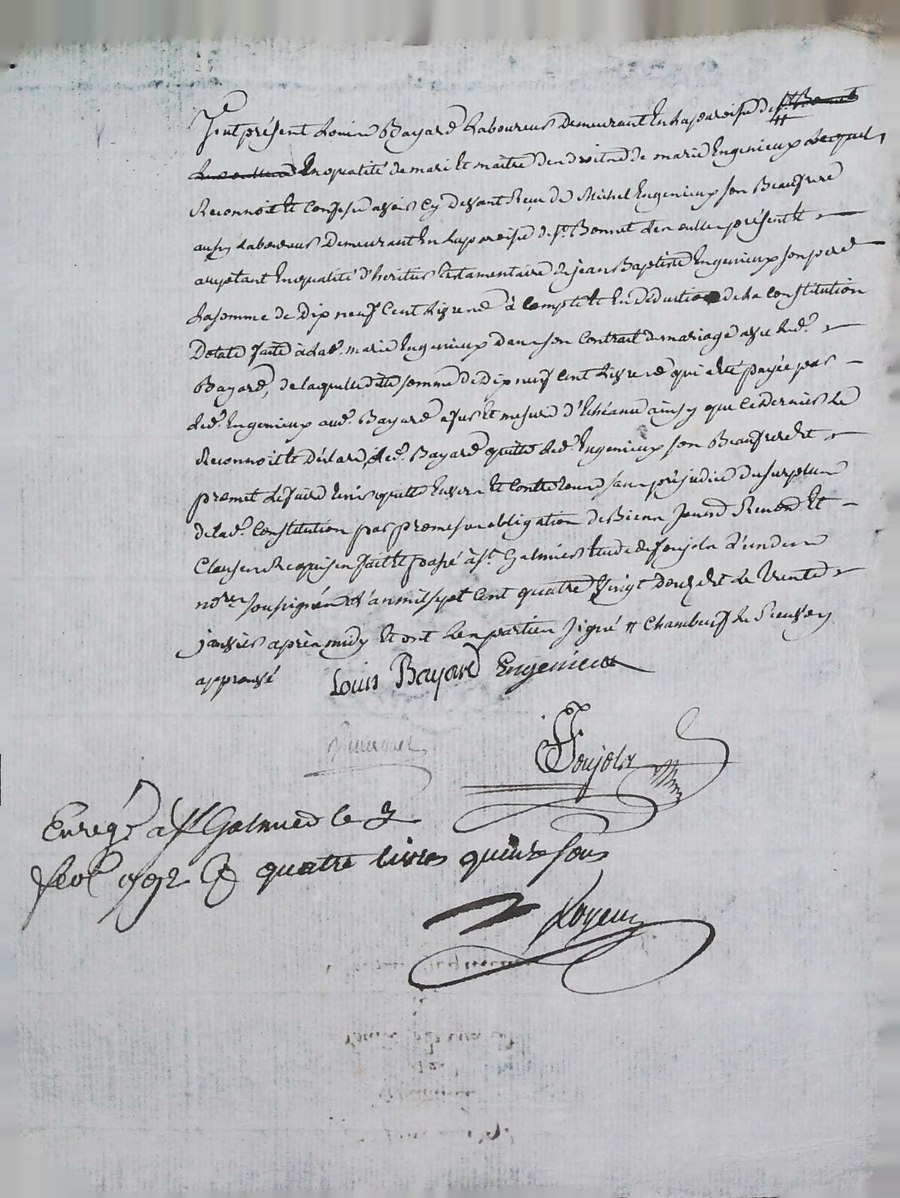 fut présent Louis Bayard Laboureur demeurant En la paroisse de St Bonnet
En qualité de mari et maitre des droits de marie Engenieux Lequel
Reconnoit et Confesse avoir cy devant Reçu de Michel Engenieux son Beaufrere
aussy Laboureur Demeurant En la paroisse de St. Bonnet Les oulles présent et
aceptant En qualité d'heritier testamentaire de jean Baptiste Engenieux son pere
La somme de Dix neuf Cent Livres à compte et En déduction de la Constitution
Dotale faite à lad. marie Engenieux dans son Contrat de mariage avec led.
Bayard, de laquelle dite somme de Dix neuf Cent Livres qui a été payée par
led. Engenieux aud. Bayard a fur et mesure d'Echéance ainsy que ce dernier le
Reconnoit et Déclare, led. Bayard quitte led. Engenieux son Beaufrere et
promet le faire tenir quitte Envers et Contre tous sans préjudice du surplus
de lad. Constitution par promesse obligation de Biens jours Renond et
Clauses Requises fait et passé à St. Galmier Etude de Soujola L'un des
nores soussignés L'an mil sept Cent quatre Vingt douze et le Trente
janvier après midy Et ont Les parties signé # Chambeuf les deux
approuvé
Louis Bayard Engenieux
Soujola
Enregé a St Galmier le 3
fevr 1792 R quatre livres quinze sous
Royeux